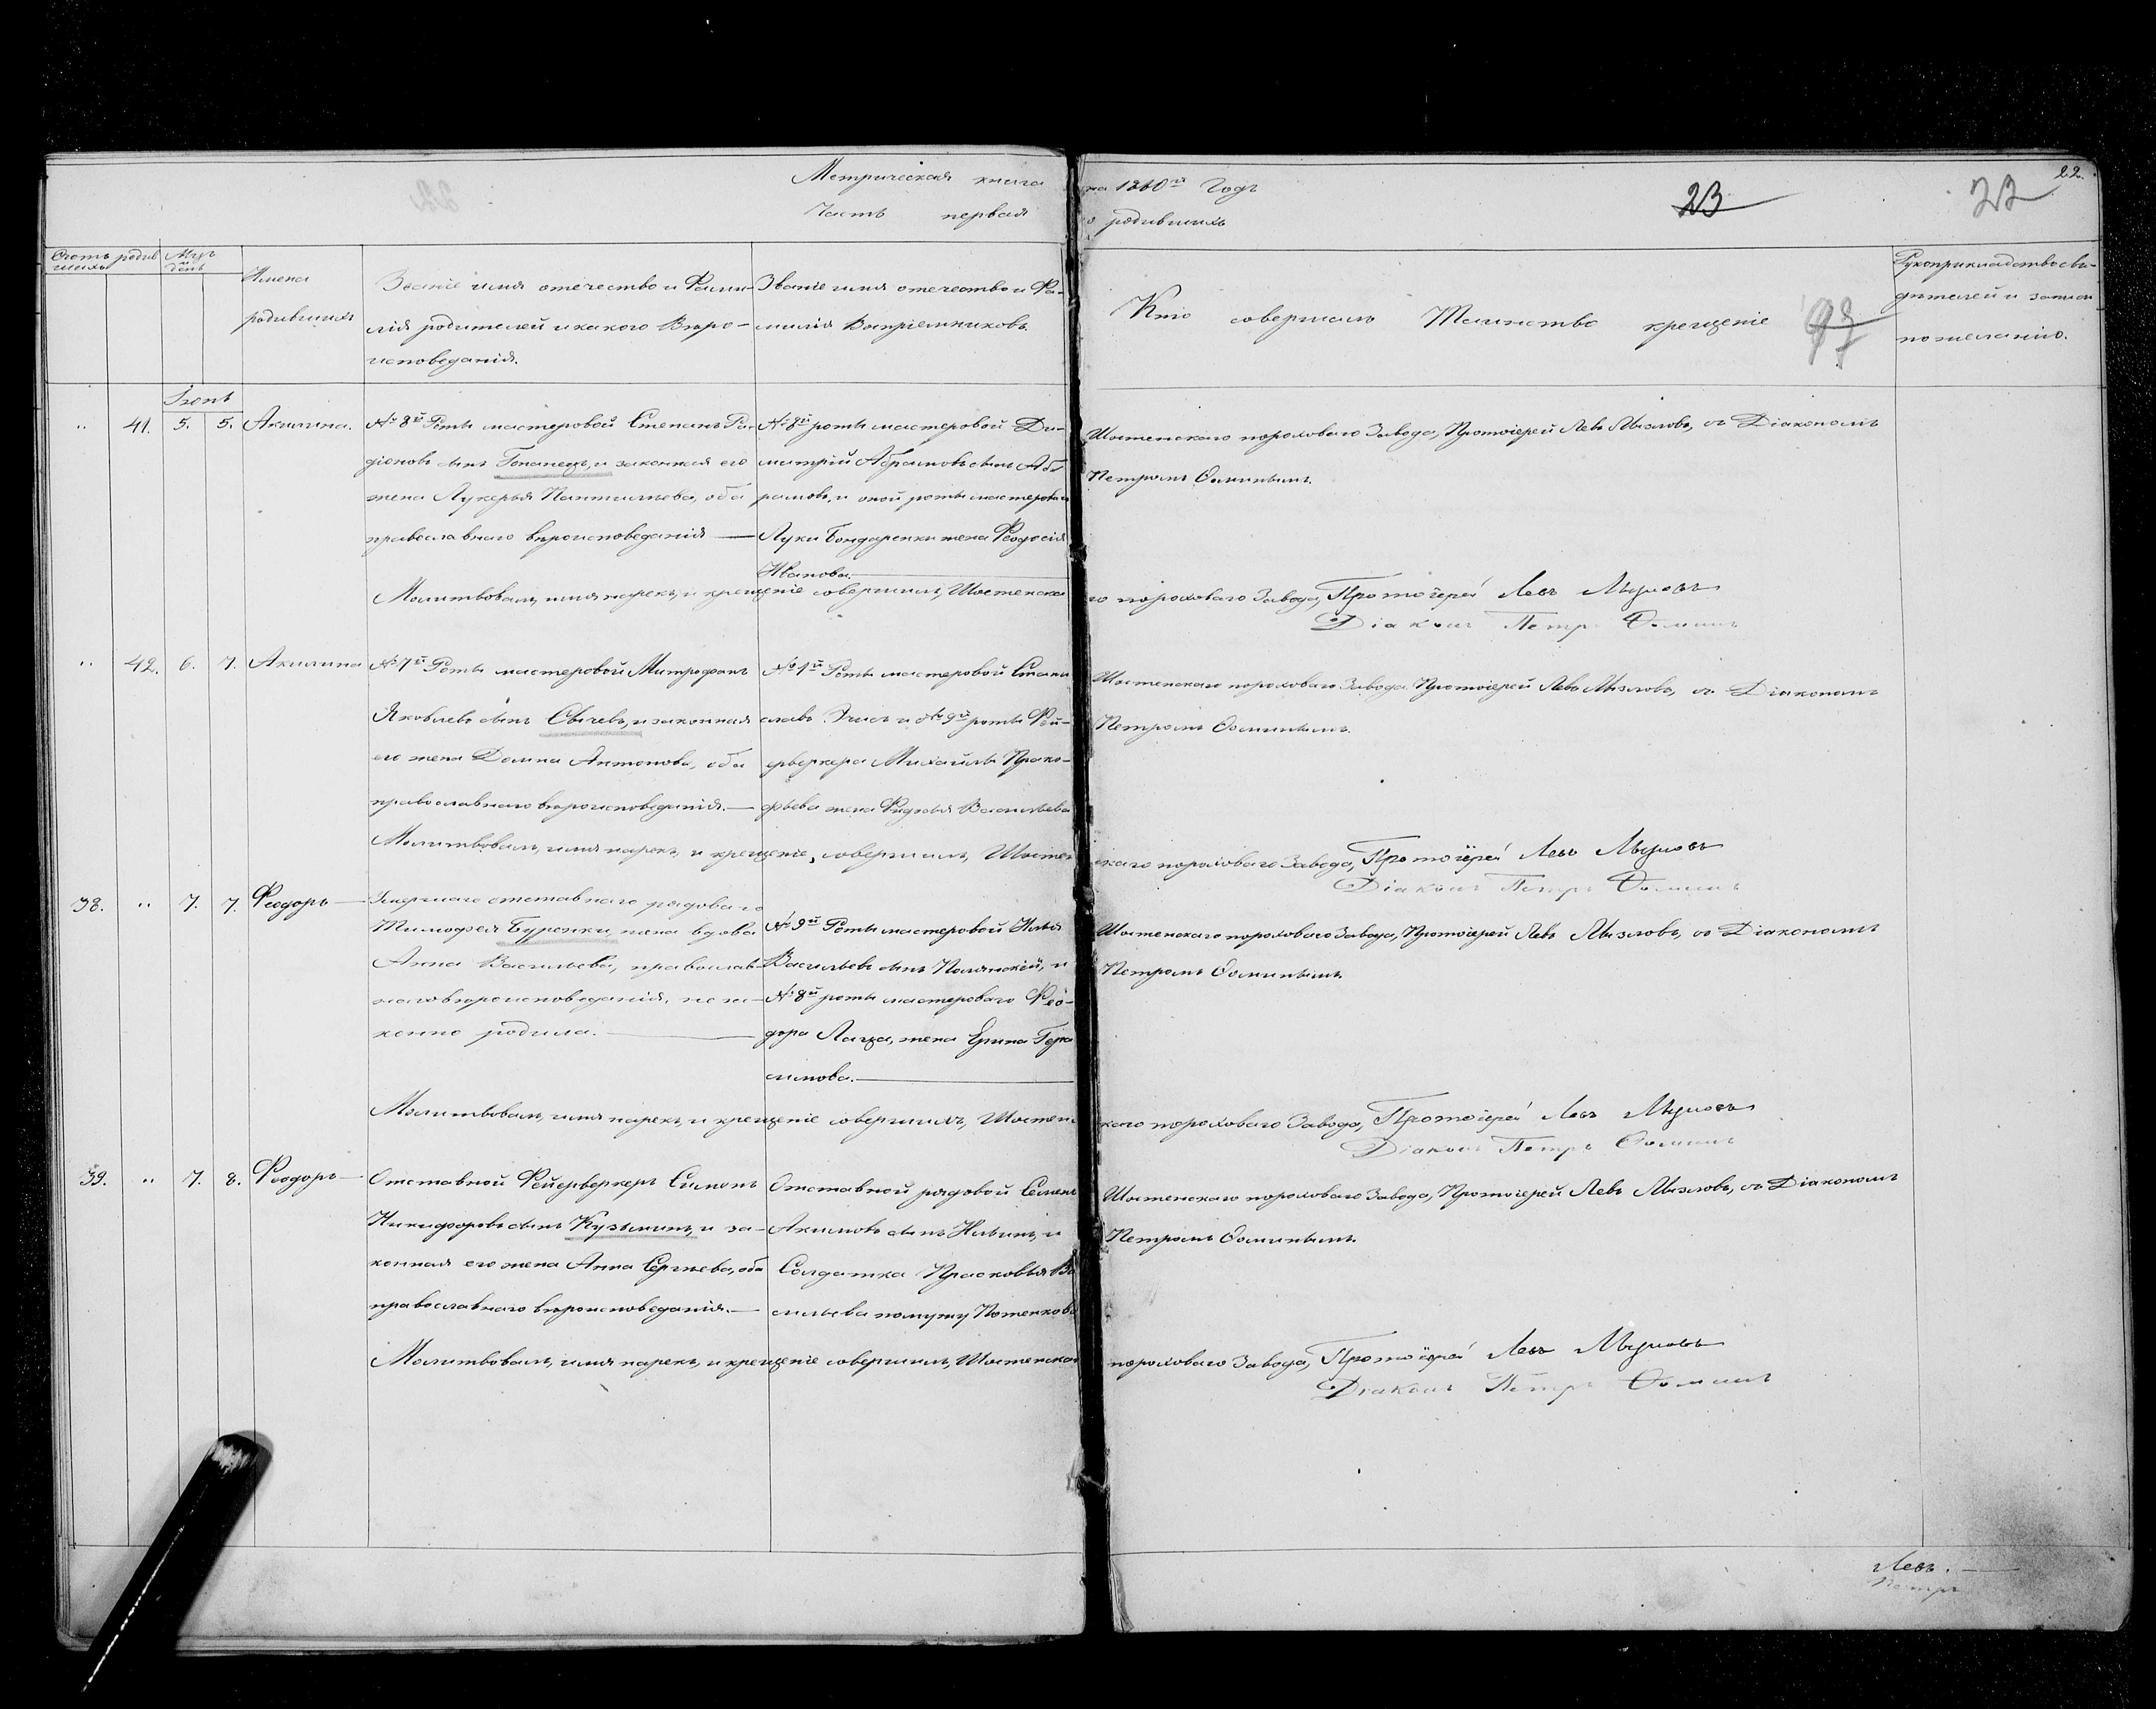 Метрическая книга на 1860й Годъ
Часть первая о родившихъ
22.
23
22
Счетъ родив
шихъ
Мцъ
и
день
Имена
родившихъ
Званіе имя отечество и Фами-
лія родителей и какого Вѣро-
исповеданія.
Званіе имя отечество и Фа-
милія Воспріемниковъ.
Кто совершалъ Таинство крещеніе
Рукоприкладство сви-
дѣтелей и записи
по желанію.
Іюнь
" 41. 5. 5. Акилина.
№ 8й Роты мастеровой Степанъ Ра-
діоновъ сынъ Гопанецъ, и законная его
жена Лукерья Пантильева, оба
православнаго вѣроисповеданія —
№ 8й роты мастеровой Ди-
митрій Абрамовъ сынъ Аб
рамовъ, и оной роты мастероваго
Луки Бондаренки жена Феодосія
Иванова. —
Шостенскаго пороховаго Завода, Протоіерей Левъ Мызловъ, съ Діакономъ
Петромъ Ѳоминымъ.
Молитвовалъ, имя нарекъ, и крещеніе совершилъ, Шостенска го пороховаго Завода, Протоіерей Левъ Мызловъ
Діаконъ Петръ Ѳоминъ
" 42. 6. 7. Акилина
№ 7й Роты мастеровой Митрофанъ
Яковлевъ сынъ Сычевъ, и законная
его жена Домна Антонова, оба
православнаго вѣроисповеданія. —
№ 1й Роты мастеровой Стани
славъ и № 9й роты Фей-
ерверкера Михайлы Проко-
фьева жена Васильева
Шостенскаго пороховаго Завода Протоіерей Левъ Мызловъ, съ Діакономъ
Петромъ Ѳоминымъ.
Молитвовалъ, имя нарекъ, и крещеніе, совершилъ, Шостен скаго пороховаго Завода, Протоіерей Левъ Мызловъ
Діаконъ Петръ Ѳоминъ
38. " 7. 7. Феодоръ —
Умершаго отставнаго рядоваго
Тимофея Буренки, жена вдова
Анна Васильева, православ-
наго вѣроисповеданія, не за-
конно родила. —
№ 9й Роты мастеровой Илья
Васильевъ сынъ Полянскій, и
№ 8й роты мастероваго Фео-
дора Лагза, жена Ерина Гера
симова. —
Шостенскаго пороховаго Завода, Протоіерей Левъ Мызловъ, съ Діакономъ
Петромъ Ѳоминымъ.
Молитвовалъ, имя нарекъ, и крещеніе совершилъ, Шостенс каго пороховаго Завода, Протоіерей Левъ Мызловъ
Діаконъ Петръ Ѳоминъ
39. " 7. 8. Феодоръ —
Отставной Фейерверкеръ Симонъ
Никифоровъ сынъ Кузьминъ, и за-
конная его жена Анна Сергѣева, оба
православнаго вѣроисповеданія. —
Отставной рядовой Семенъ
Акимовъ сынъ Ильинъ, и
Солдатка Прасковья Ва
сильева по мужу Потенкова
Шостенскаго пороховаго Завода, Протоіерей Левъ Мызловъ, съ Діакономъ
Петромъ Ѳоминымъ.
Молитвовалъ, имя нарекъ, и крещеніе совершилъ, Шостенскаго пороховаго Завода, Протоіерей Левъ Мызловъ
Діаконъ Петръ Ѳоминъ
Левъ. —
Петръ